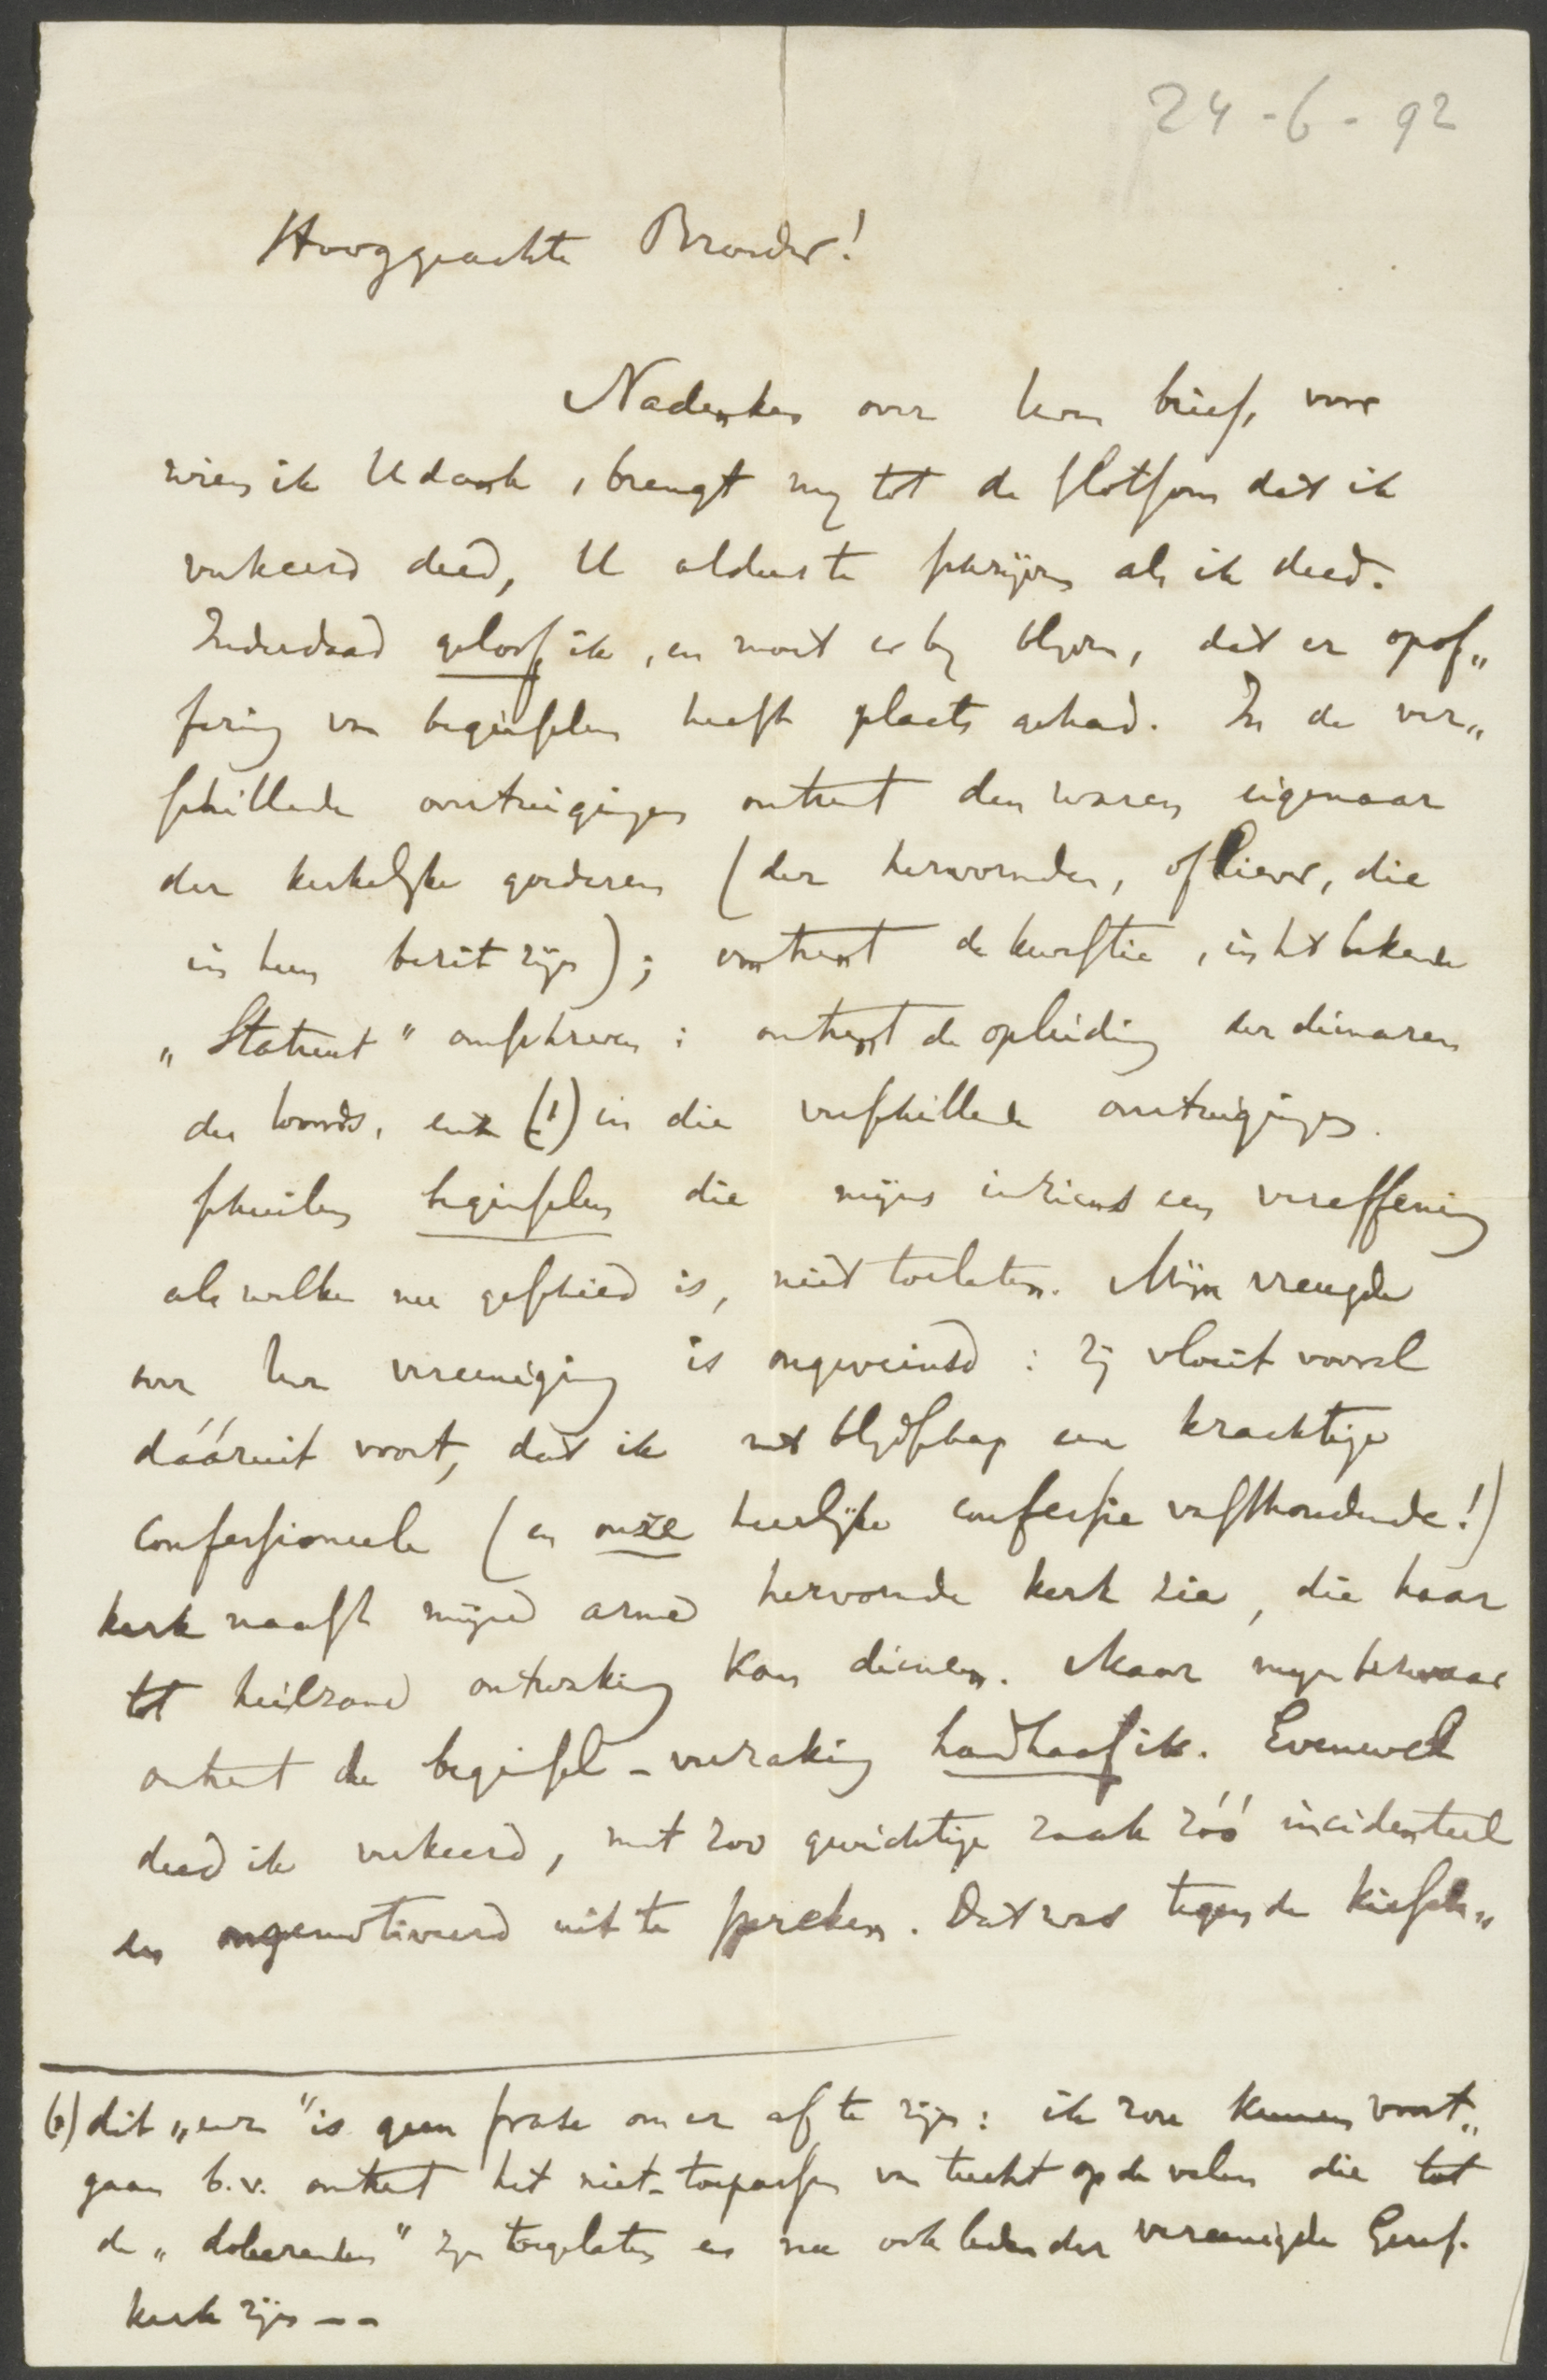 24-6-92
Hooggeachte Broeder!
Nadenken over Uwen brief, voor
wien ik U dank, brengt mij tot de slotsom dat ik
verkeerd deed, U aldus te schrijven als ik deed.
Inderdaad geloof ik, en moet er bij blijven, dat er opof„
fering van beginselen heeft plaats gehad. In de ver„
schillende overtuigingen omtrent den waren eigenaar
der kerkelijke goederen (der hervormden, of liever, die
in hun bezit zijn); omtrent de kwestie, in het bekende
„Statuut" omschreven; omtrent de opleiding der dienaren
des Woords, enz (1) in die verschillende overtuigingen
schuilen beginselen die mijns inziens een vereffening
als welke nu geschied is, niet toelaten. Mijn vreugde
over Uw vereeniging is ongeveinsd: zij vloeit vooral
dááruit voort, dat ik met blijdschap eene krachtige
confessioneele (en onze heerlijke confessie vasthoudende!)
kerk naast mijne arme hervormde kerk zie, die haar
tot heilzame ontwaking kan dienen. Maar mijn bezwaar
omtrent de beginsel-verzaking handhaaf ik. Evenwel
deed ik verkeerd, met zoo gewichtige zaak zóó incidenteel
en ongemotiveerd uit te spreken. Dat was tegen de kiesch„
(1) dit „enz" is geen frase om er af te zijn: ik zou kunnen voort„
gaan b.v. omtrent het niet-toepassen van tucht op de velen die tot
de „doleerenden" zijn toegelaten en nu ook leden der vereenigde Geref.
kerk zijn --